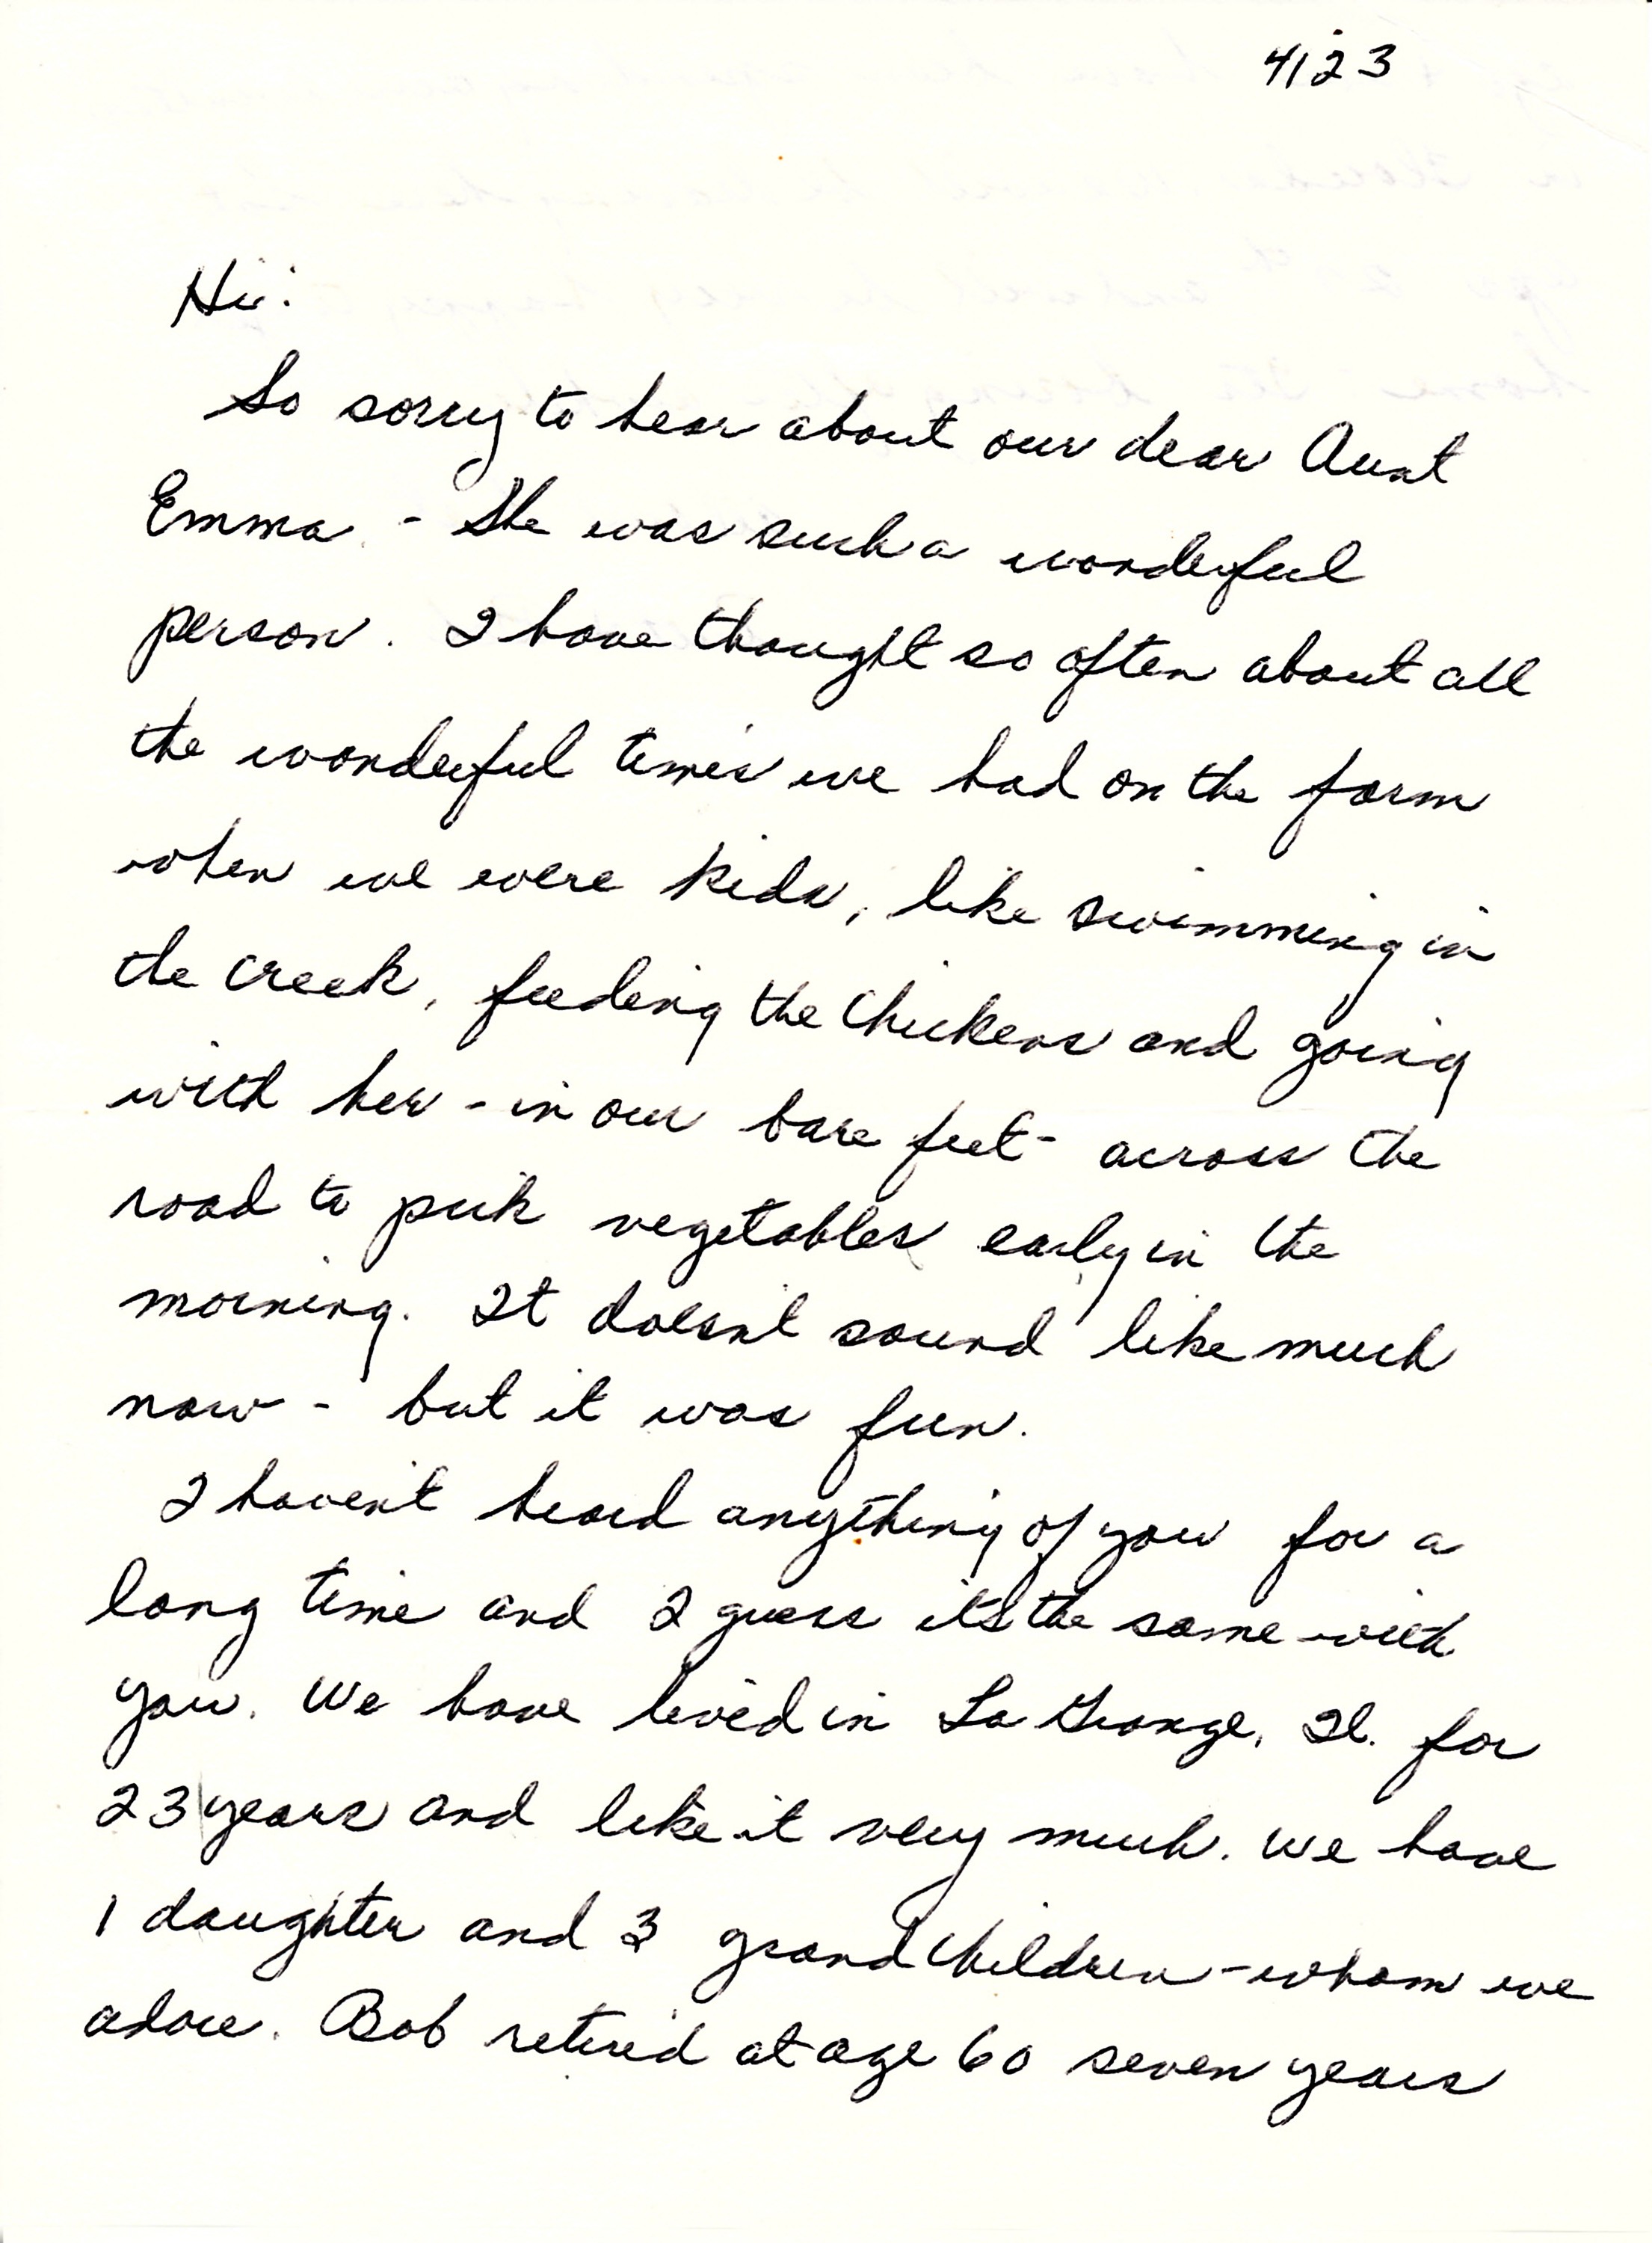 4/23
Hi:
So sorry to hear about our dear Aunt
Emma. - She was such a wonderful
person. I have thought so often about all
the wonderful times we had on the farm
when we were kids, like swimming in
the creek, feeding the chickens and going
with her - in our bare feet - across the
road to pick vegetables early in the
morning. It doesn't sound like much
now - but it was fun.
I haven't heard anything of you for a
long time and I guess it's the same with
you. We have lived in La Grange, Il. for
23 years and like it very much. We have
1 daughter and 3 grandchildren - whom we
adore. Bob retired at age 60 seven years